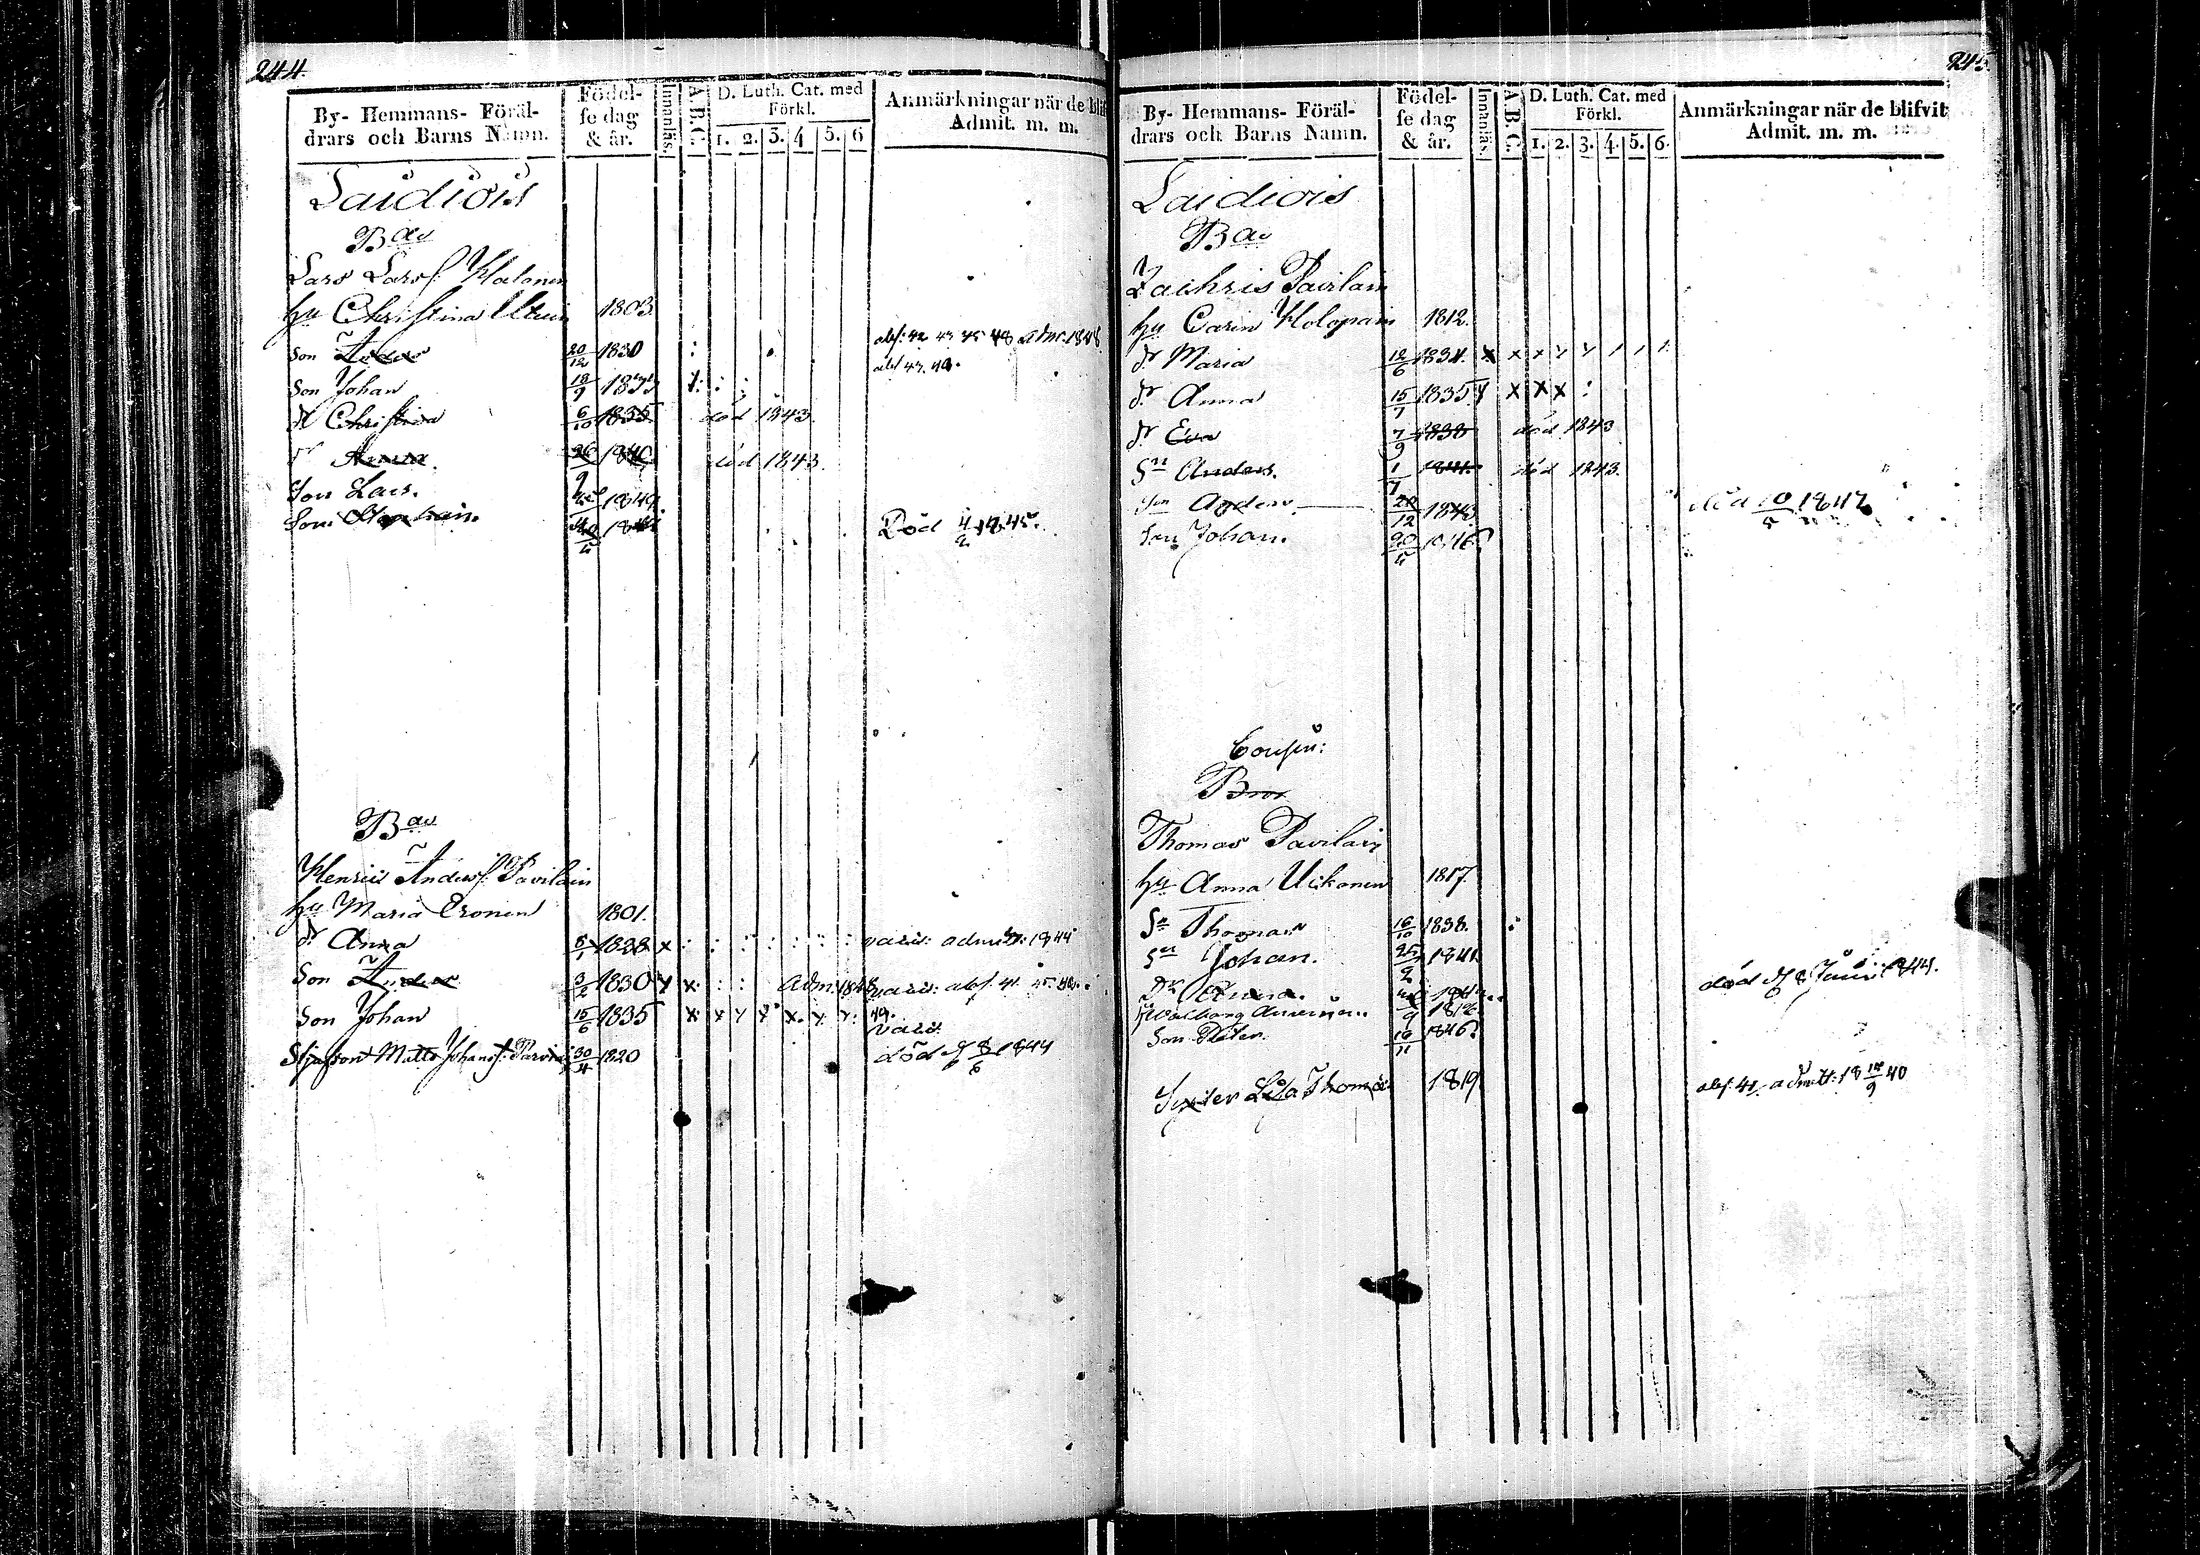 244.
By- Hemmans- Föräl-
drars och Barns Namn.
Födel-
se dag
& år.
Innanläs.
A.B.C.
D. Luth. Cat. med
Förkl.
1. 2. 3. 4 5. 6
Anmärkningar när de blif
Admit. m. m.
Laidiois
Bdu
Lars Larsf. Halonen
hu Christina 1803.
Son Anders 20/12 1830 abs: 42 43 45 48 adm: 1848
Son Johan 18/9 1833 abs 47. 49.
dr Christina 6/10 1835 död 1843.
dr Anna 26/9 1840 död 1843.
Son Lars. 1849
Son Staphan. Död 4/2 1845.
Bdu
Henric Andersf. Pavilain
hu Maria Eronen 1801.
dr Anna 5/1 1828 x vacc: admitt: 1844
Son Anders 3/2 1830 x x. adm: 1848 vacc: abs. 41 45. 49.
Son Johan 15/6 1835 x x x x x. x. x. 49.
vacc.
Stjufson Matts Johansf. 30/4 1820 död d 8/6 1844
245
By- Hemmans- Föräl-
drars och Barns Namn.
Födel-
se dag
& år.
Innanläs.
A.B.C.
D. Luth. Cat. med
Förkl.
1. 2. 3. 4. 5. 6.
Anmärkningar när de blifvit
Admit. m. m.
Laidiois
Bdu
Zachris Pavilain
hu Carin Holopain 1812.
dr Maria 12/6 1831. x x x x x 1 1 1.
dr Anna 15/7 1835 x x x x :
dr Eva 7/9 1838 död 1843
Sn Anders. 1/7 1841. död 1843.
Son Anders 1843 död 10/5 1847
Son Johan. 20/5 1846
Cousin:
Bror
Thomas Pavilain
hu Anna Uckonen 1817.
Sn Thomas 16/10 1838.
Sn Johan. 25/2 1841.
Dr Anna. död d 8 Junii 1844.
Son Peter. 16/11 1846
Syster Lisa Thomæ 1819 abs. 41. admitt: 18 14/9 40